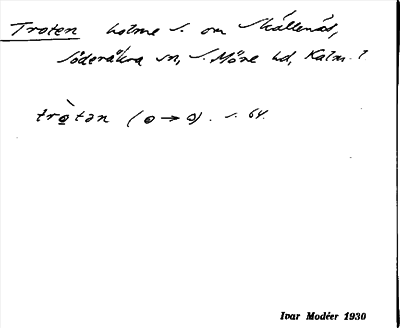 Troten holme s. om Skällenäs,
Söderåkra sn, S. Möre hd, Kalm. l
trò̱tən (o → o). s. 64.
Ivar Modéer 1930